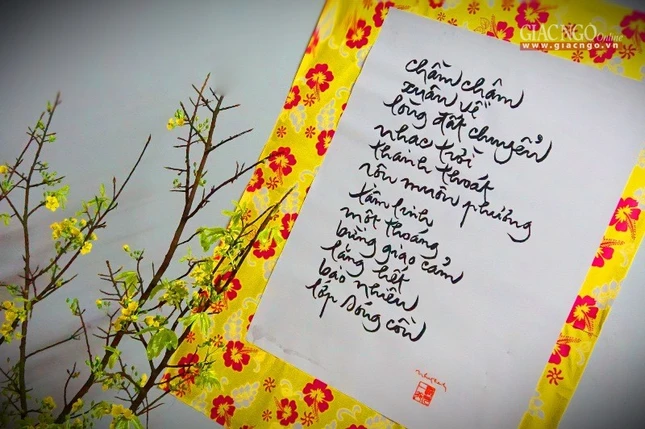 GIÁC NGỘ Online
www.giacngo.vn
chầm chậm
xuân về
lòng đất chuyển
nhạc trời
thanh thoát
rộn muôn phương
tâm linh
một thoáng
bừng giao cảm
lắng hết
bao nhiên
lớp sóng cồn